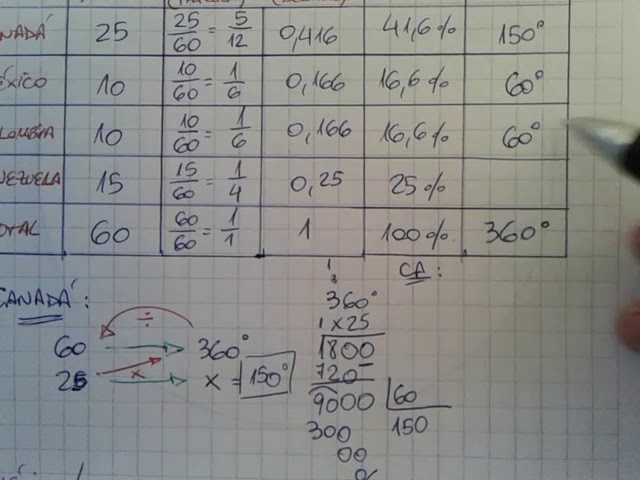 NADÁ 25 25/60 = 5/12 0,416 41,6% 150°
ÉXICO 10 10/60 = 1/6 0,166 16,6% 60°
LOMBIA 10 10/60 = 1/6 0,166 16,6% 60°
NEZUELA 15 15/60 = 1/4 0,25 25%
OTAL 60 60/60 = 1/1 1 100% 360°
CANADÁ:
÷
60 360°
25 x x = 150°
CA:
1
3
360°
1 x25
1800
720-
9000 60
300 150
00
0